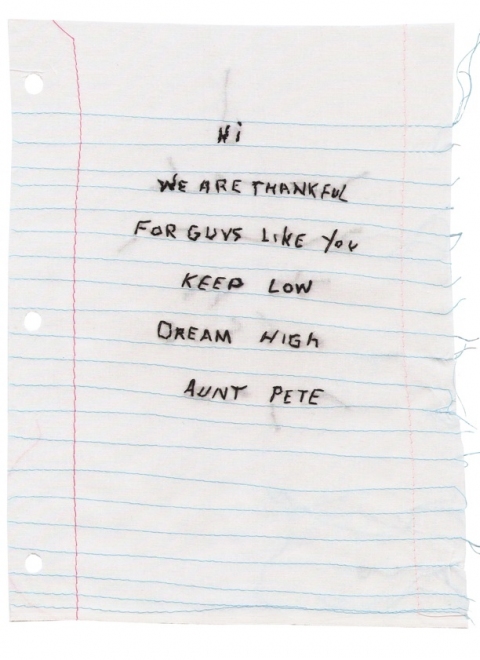 Hi
WE ARE THANKFUL
FOR GUYS LIKE YOU
KEEP LOW
DREAM HIGh
AUNT PETE